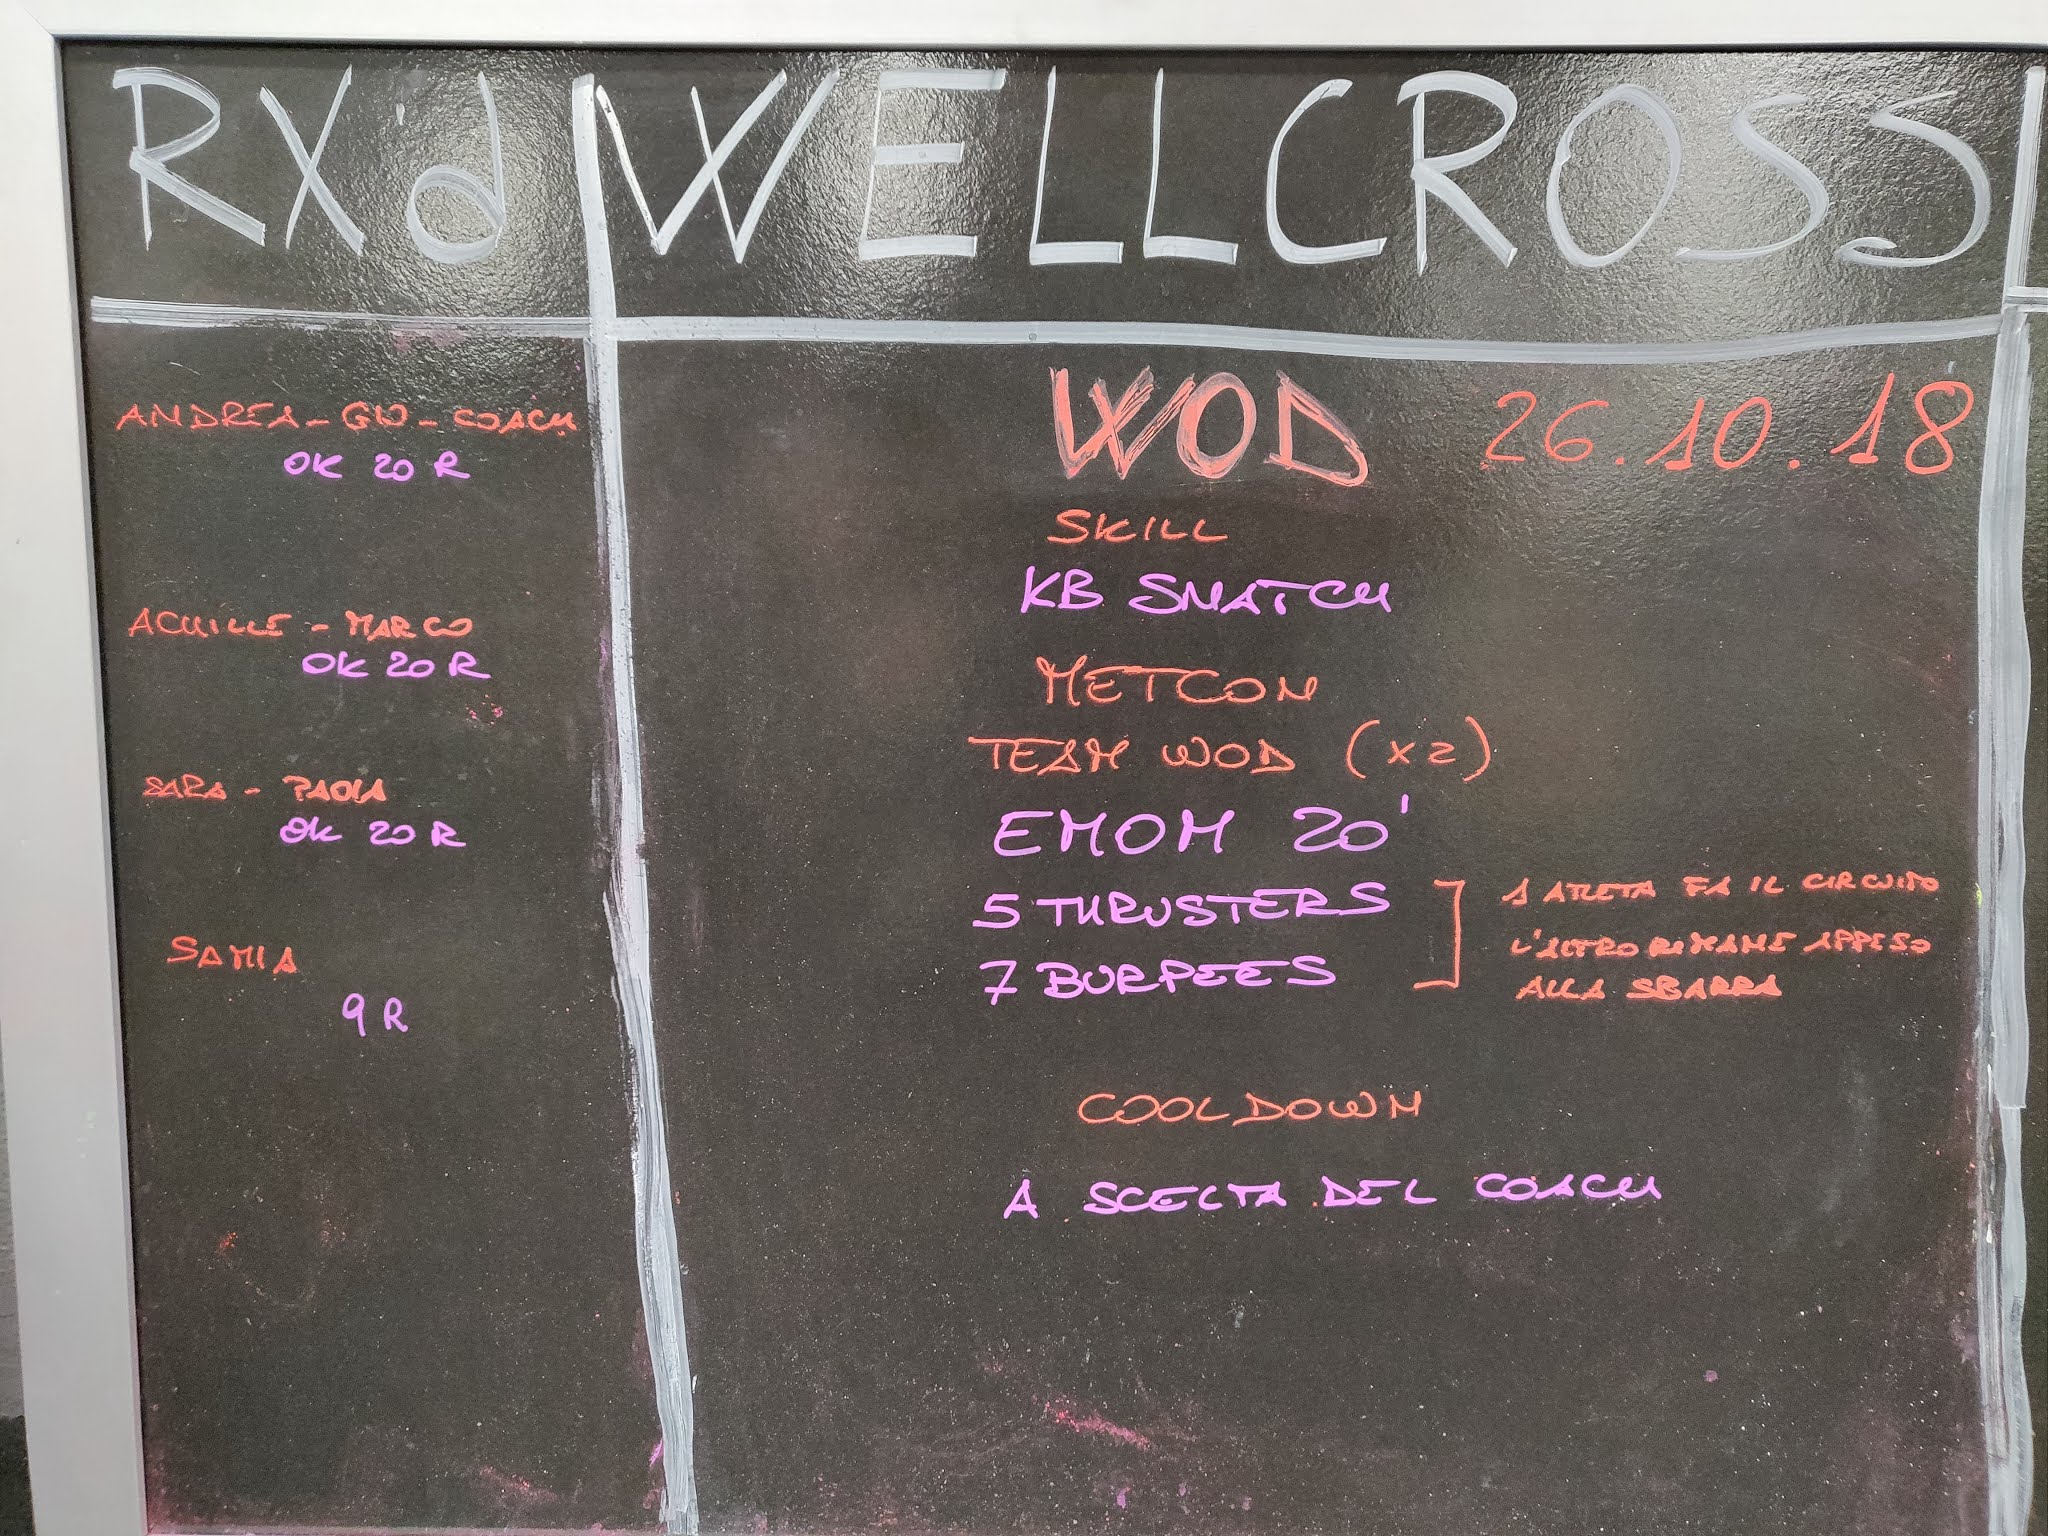 RX'd
ANDREA - GIO - COACH
OK 20 R
ACHILLE - MARCO
OK 20 R
SARA - PAOLA
OK 20 R
SAMIA
9 R
WELLCROSS
WOD 26.10.18
SKILL
KB SNATCH
METCON
TEAM WOD (x2)
EMOM 20'
5 THRUSTERS
7 BURPEES
1 ATLETA FA IL CIRCUITO
L'ALTRO RIMANE APPESO
ALLA SBARRA
COOLDOWN
A SCELTA DEL COACH